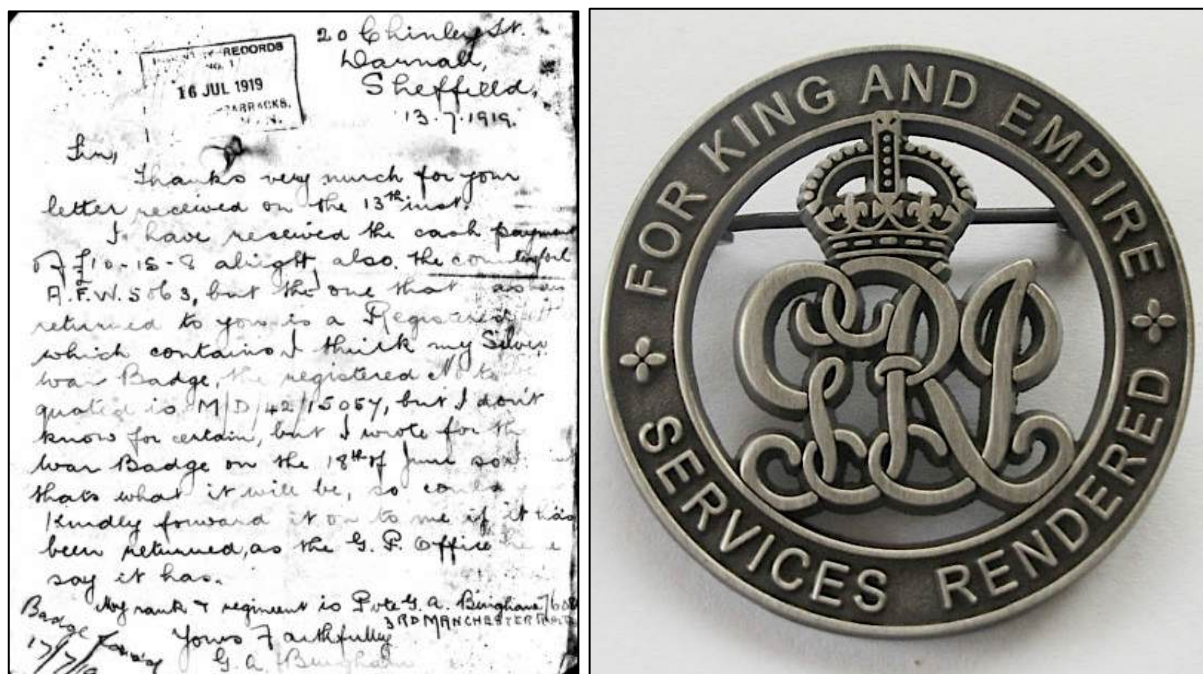 20 Chinley St.
Darnall,
Sheffield,
13.7.1919.
RECORDS
NO. 1
16 JUL 1919
BARRACKS,
Sir,
Thanks very much for your
letter received on the 13th inst
I have received the cash payment
of £10-15-8 alright, also the counterfoil
A.F.W. 5063, but the one that
returned to you is a Registered
which contains I think my Silver
War Badge, the registered No to
quoted is M/D/42/15057, but I don't
know for certain, but I wrote for the
War Badge on the 18th of June so
thats what it will be, so could
kindly forward it on to me if it has
been returned, as the G. P. Office
say it has.
My rank & regiment is Pvte G. A. Bingham
3RD MANCHESTER
Yours Faithfully
G. A. Bingham
Badge
17/7/19
FOR KING AND EMPIRE
SERVICES RENDERED